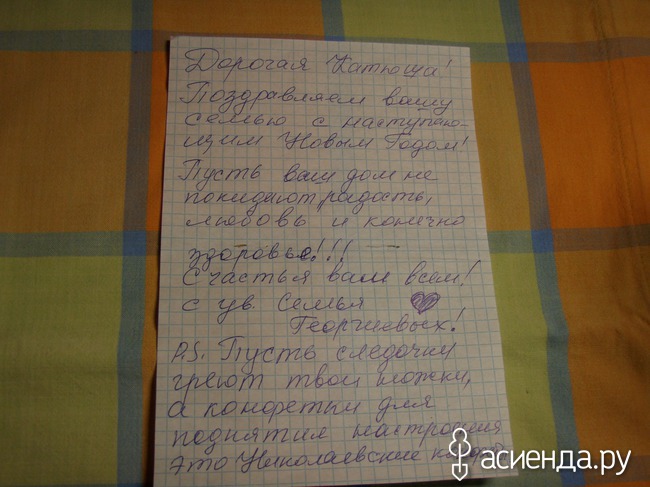 Дорогая Катюша!
Поздравляем вашу
семью с наступаю-
щим Новым Годом!
Пусть ваш дом не
покидают радость,
любовь и конечно
здоровье!!!
Счастья вам всем!
с ув. Семья
Георгиевых!
P.S. Пусть следочки
греют твои ножки,
а конфетки для
поднятия настроения
это Николаевские
асиенда.ру